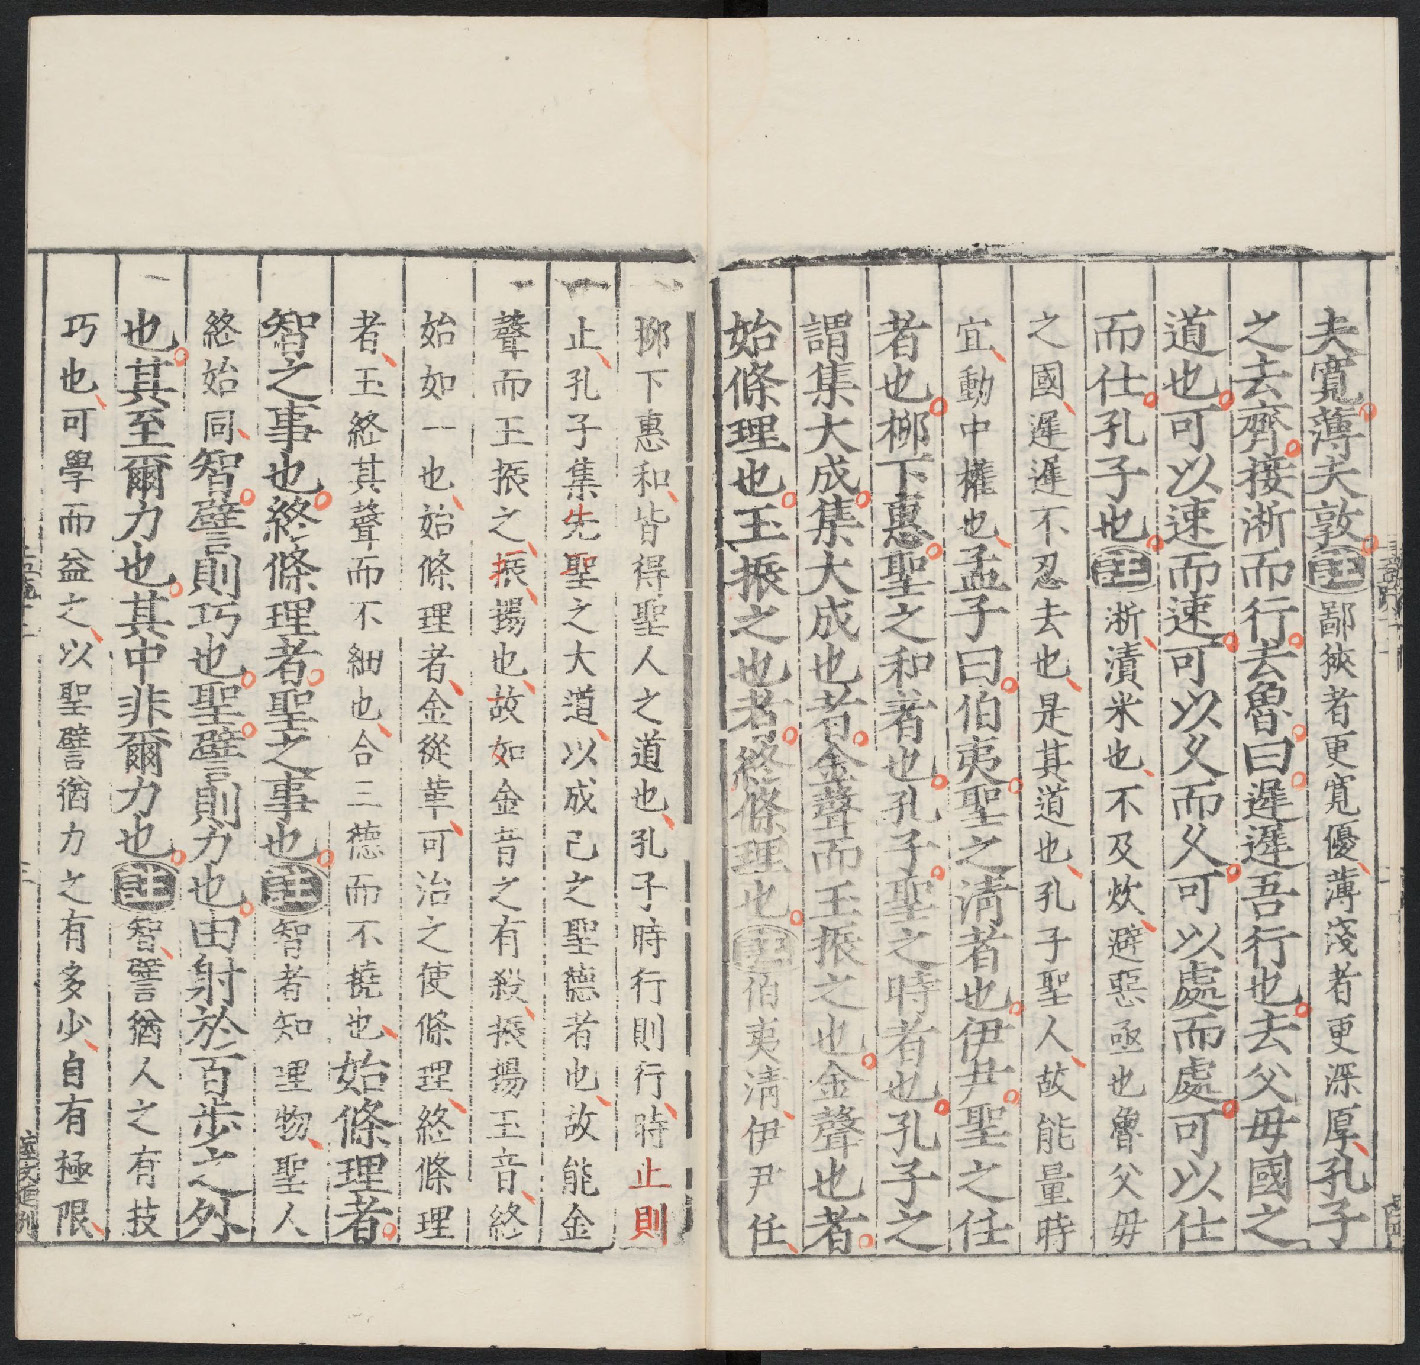 夫寬薄夫敦註鄙狹者更寬優薄淺者更深厚孔子
之去齊接淅而行去魯曰遲遲吾行也去父毋國之
道也可以速而速可以乆而乆可以處而處可以仕
而仕孔子也註淅漬米也不及炊避惡亟也魯父毋
之國遲遲不忍去也是其道也孔子聖人故能量時
宜動中權也孟子曰伯夷聖之淸者也伊尹聖之任
者也桞下惠聖之和者也孔子聖之時者也孔子之
謂集大成集大成也者金聲而王振之也金聲也者
始條理也玉振之也者終條理也註伯夷淸伊尹任
桞下惠和皆得聖人之道也孔子時行則行時止則
止孔子集先聖之大道以成己之聖德者也故能金
聲而王振之振揚也故如金音之有殺振揚玉音終
始如一也始條理者金從革可治之使條理終條理
者玉終其聲而不細也合三德而不撓也始條理者
智之事也終條理者聖之事也註智者知理物聖人
終始同智譬則巧也聖譬則力也由射於百步之外
也其至爾力也其中非爾力也註智譬猶人之有技
巧也可學而益之以聖譬猶力之有多少自有極限